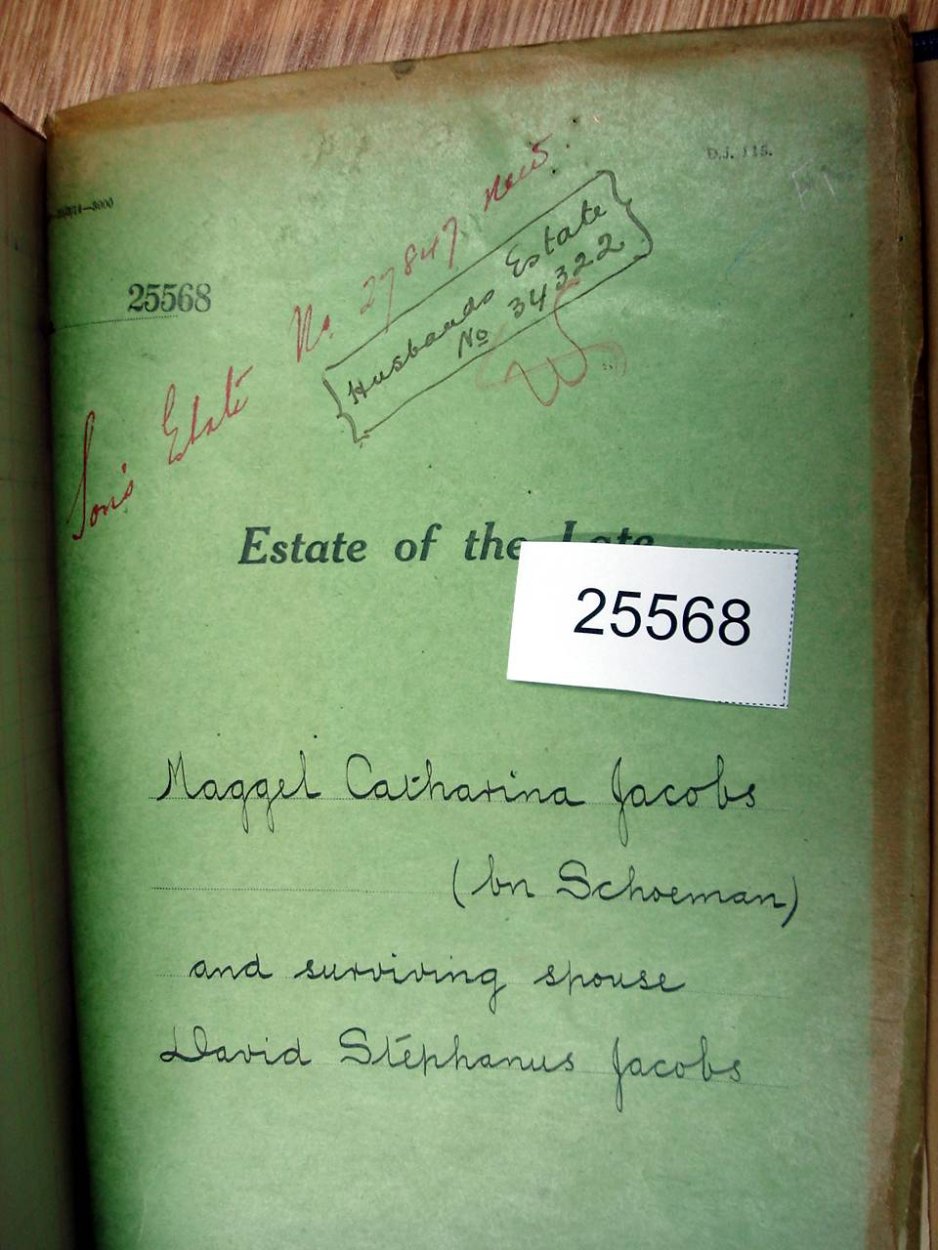 D.J. 115.
25568
Son's Estate No. 27847 new.
Husbands Estate
No 34322
Estate of the Late
25568
Maggel Catharina Jacobs
(bn Schoeman)
and surviving spouse
David Stephanus Jacobs